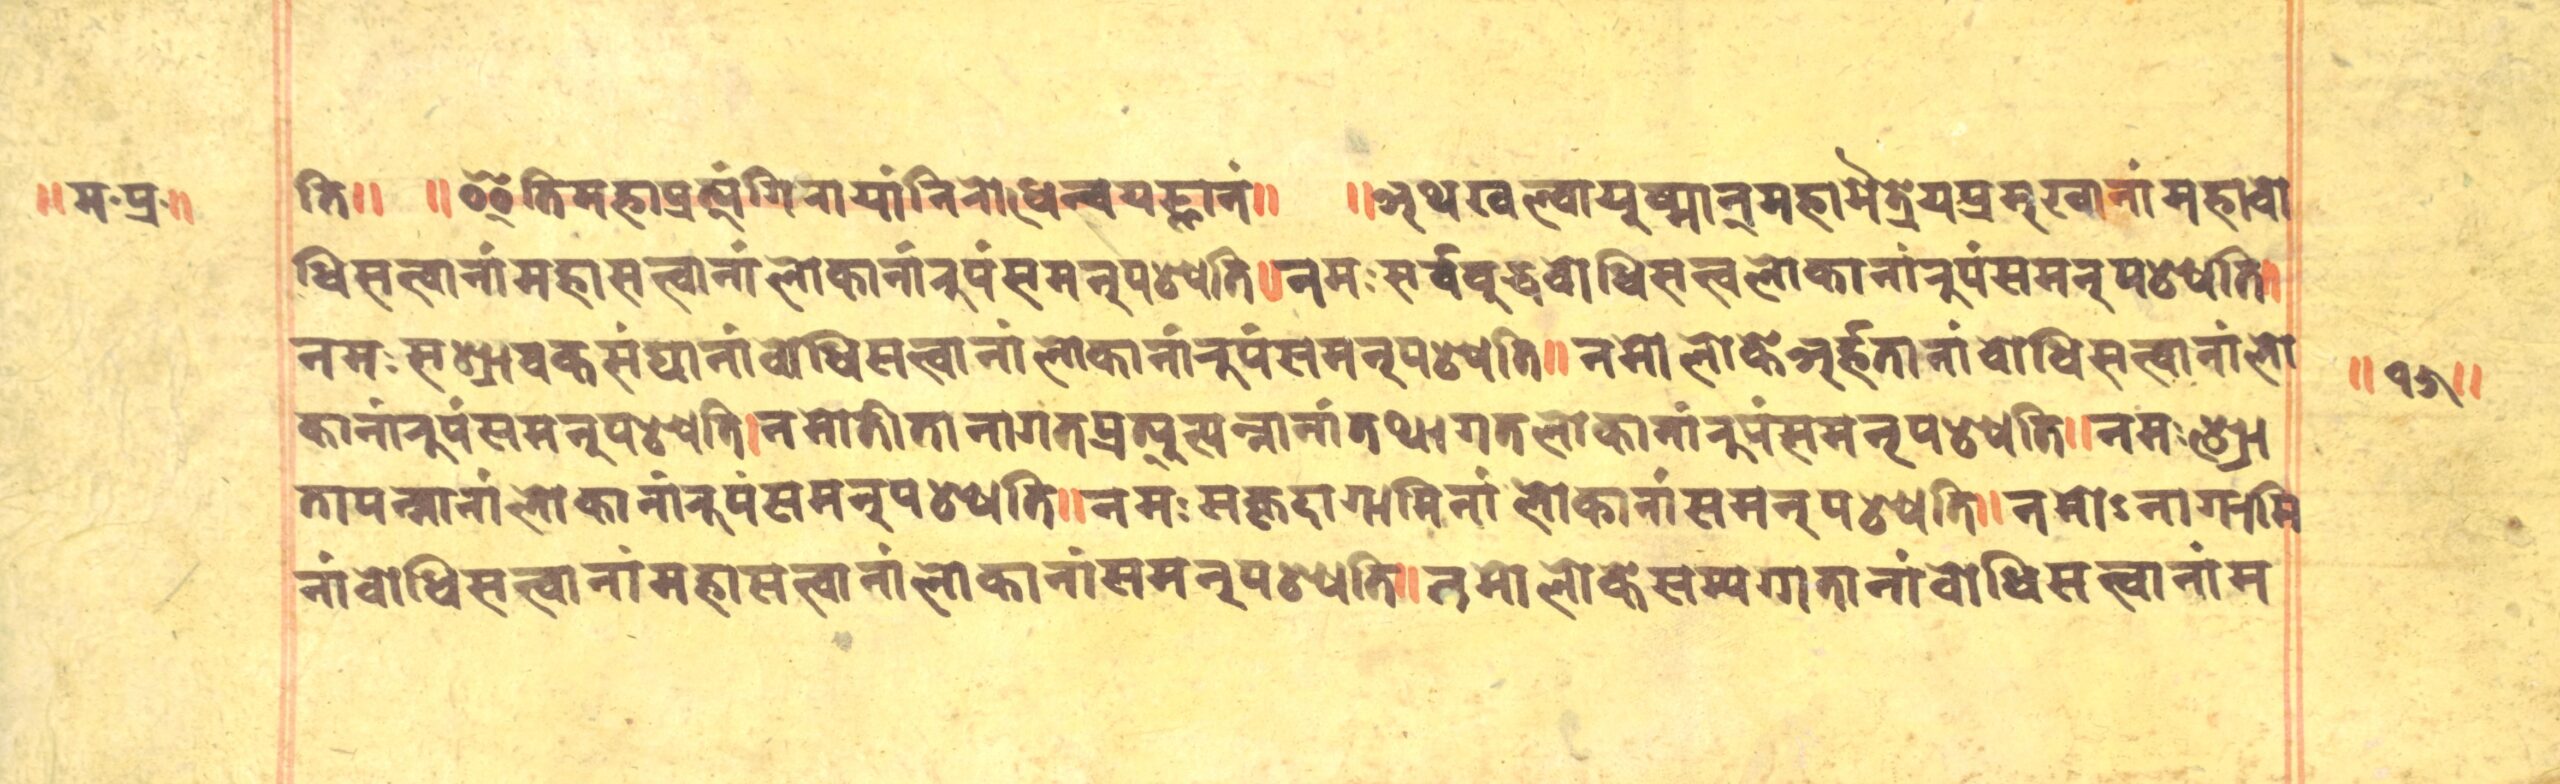 ॥म॰प्र॰॥
ति॥ ॥इति महाप्रत्यंगिरायां निरोधेन्वयज्ञानं॥ ॥अथ खल्वायुष्मान् महामैत्रेयप्रमुखानां महावो
धिसत्त्वानां महासत्त्वानां लोकानां रुपं समनुपश्यति॥नमः सर्वबुद्धवोधिसत्त्व लोकानां रुपं समनुपश्यति॥
नमः सश्रावकसंघानां वोधिसत्त्वानां लोकानां रुपं समनुपश्यति॥नमो लोके अर्हतानां वोधिसत्त्वानां लो
॥१५॥
कानां रुपं समनुपश्यति।नमोतीतानागतप्रत्युत्पन्नानां तथागतलोकानां रुपं समनुपश्यति॥नमः श्रो
तापन्नानां लोकानां रुपं समनुपश्यति॥नमः सकृदागामिनां लोकानां समनुपश्यति॥नमोऽनागामि
नां वोधिसत्त्वानां महासत्त्वानां लोकानां समनुपश्यति॥नमो लोके सम्यगातानां वोधिसत्त्वानां म